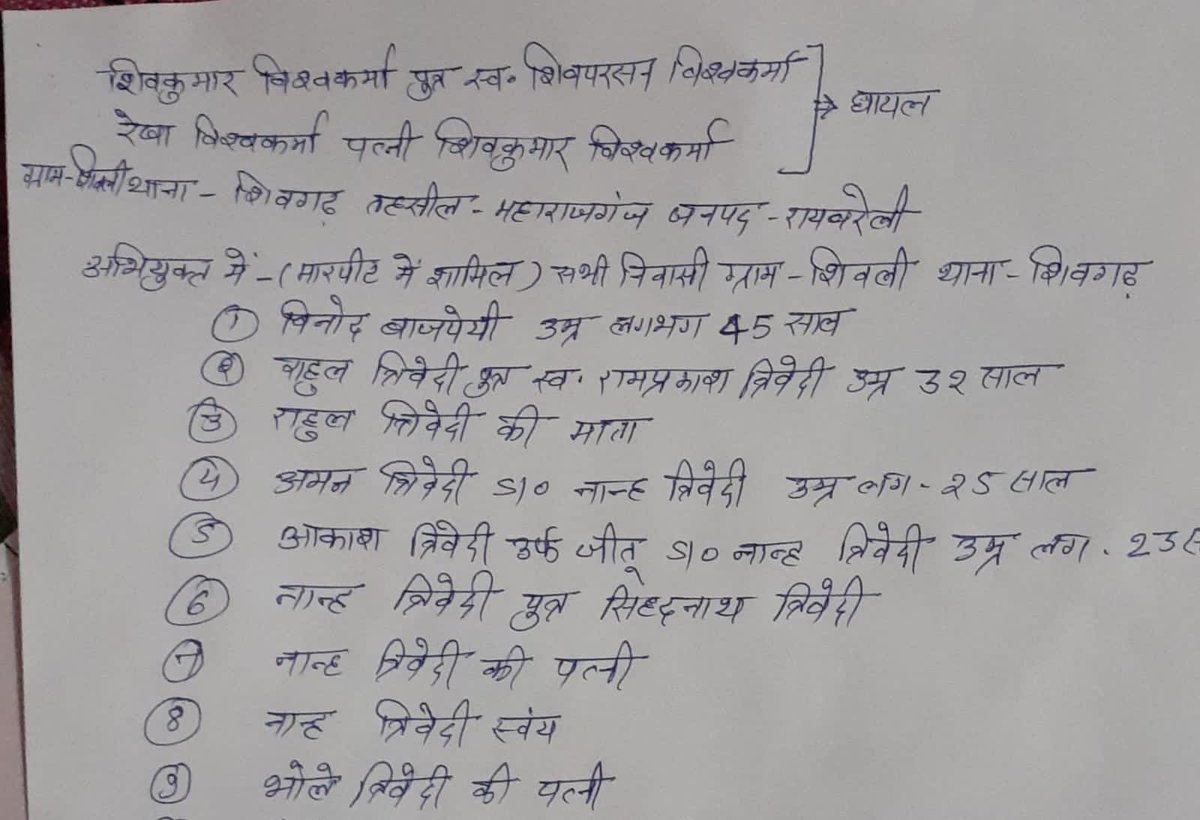 शिवकुमार विश्वकर्मा पुत्र स्व॰ शिवपरसन विश्वकर्मा
→ घायल
रेखा विश्वकर्मा पत्नी शिवकुमार विश्वकर्मा
ग्राम-शिवली थाना - शिवगढ़ तहसील - महाराजगंज जनपद - रायबरेली
अभियुक्त में - (मारपीट में शामिल) सभी निवासी ग्राम - शिवली थाना - शिवगढ़
① विनोद बाजपेयी उम्र लगभग 45 साल
② राहुल त्रिवेदी पुत्र स्व. रामप्रकाश त्रिवेदी उम्र 32 साल
③ राहुल त्रिवेदी की माता
④ अमन त्रिवेदी S/O नान्ह त्रिवेदी उम्र लग - 25 साल
⑤ आकाश त्रिवेदी उर्फ जीतू S/O नान्ह त्रिवेदी उम्र लग . 23
⑥ नान्ह त्रिवेदी पुत्र सिद्धनाथ त्रिवेदी
⑦ नान्ह त्रिवेदी की पत्नी
⑧ नान्ह त्रिवेदी स्वंय
⑨ भोले त्रिवेदी की पत्नी